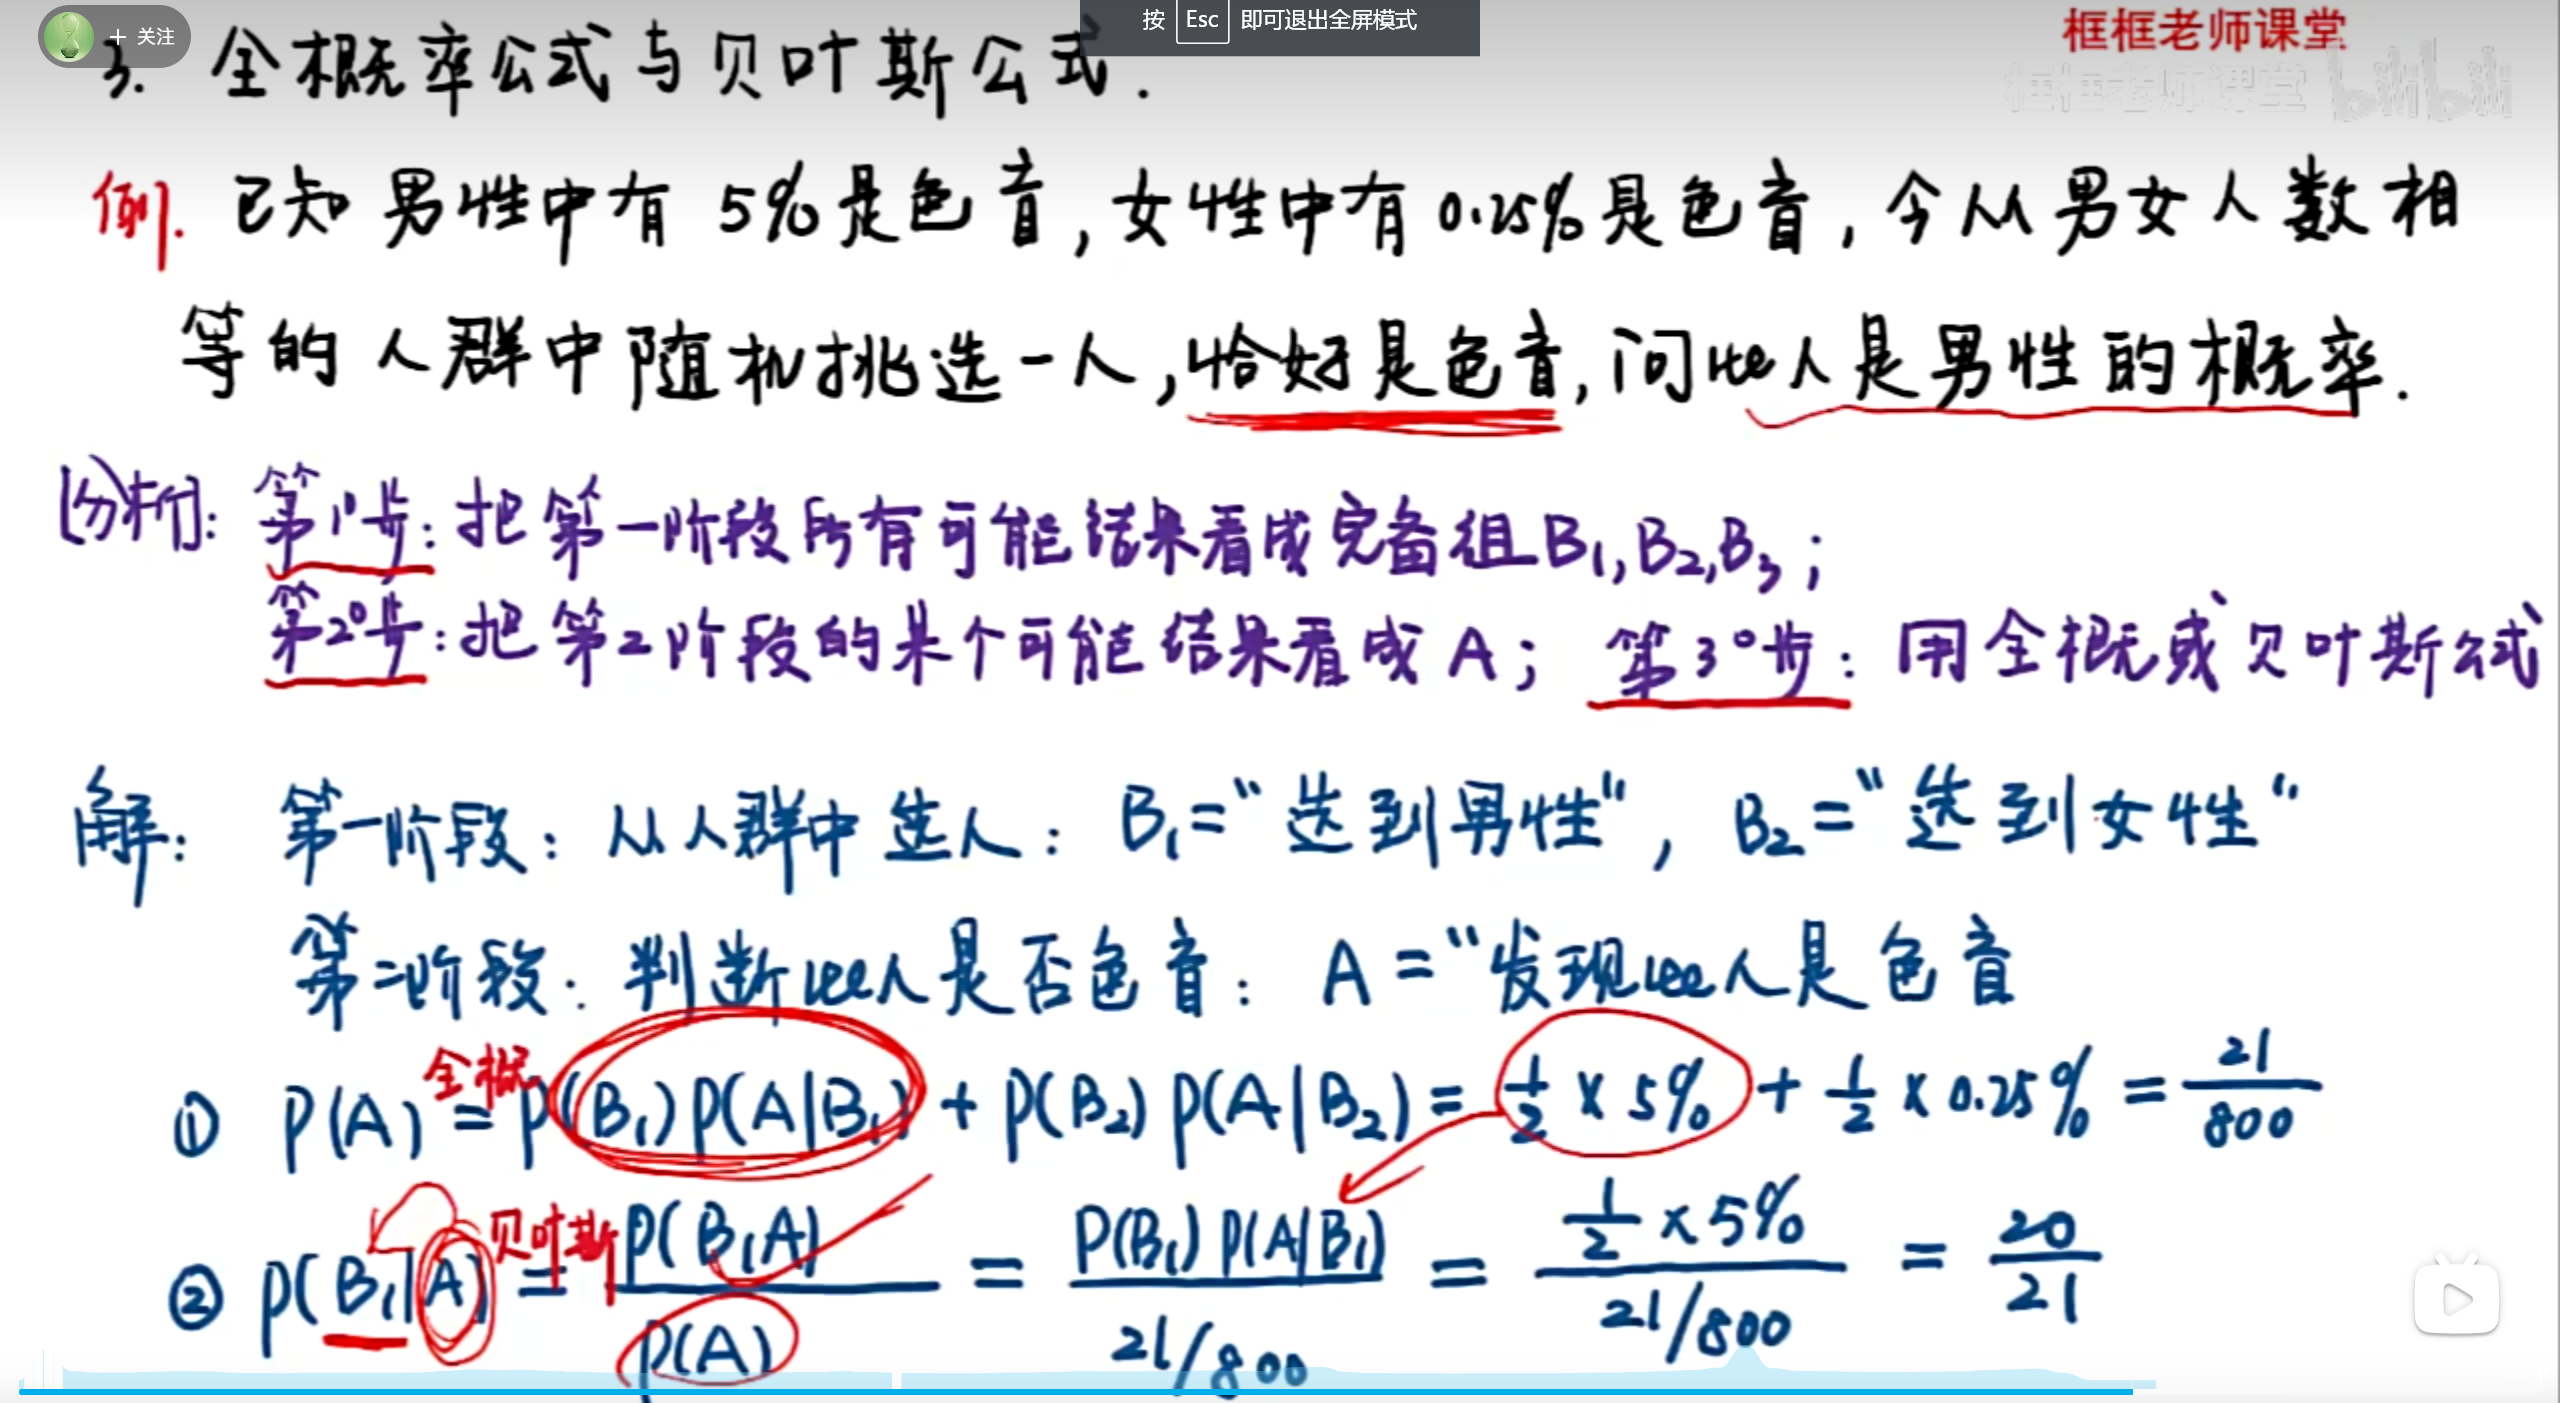 按 Esc 即可退出全屏模式
+ 关注
框框老师课堂
框框老师课堂 bilibili
3. 全概率公式与贝叶斯公式.
例. 已知男性中有 5% 是色盲, 女性中有 0.25% 是色盲, 今从男女人数相
等的人群中随机挑选一人, 恰好是色盲, 问此人是男性的概率.
分析: 第1°步: 把第一阶段所有可能结果看成完备组 B₁, B₂, B₃ ;
第2°步: 把第2阶段的某个可能结果看成 A ; 第3°步: 用全概或贝叶斯公式
解: 第一阶段: 从人群中选人: B₁ = “选到男性”, B₂ = “选到女性“
第二阶段: 判断此人是否色盲: A = “发现此人是色盲
全概
① P(A) = P(B₁) P(A|B₁) + P(B₂) P(A|B₂) = 1/2 × 5% + 1/2 × 0.25% = 21/800
贝叶斯
② P(B₁|A) = P(B₁A)/P(A) = P(B₁) P(A|B₁)/(21/800) = (1/2 × 5%)/(21/800) = 20/21